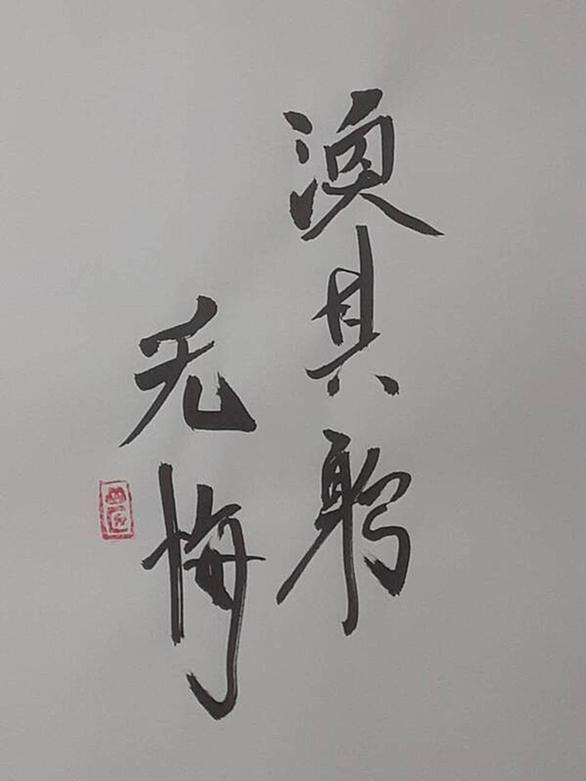 涣其躬
无悔